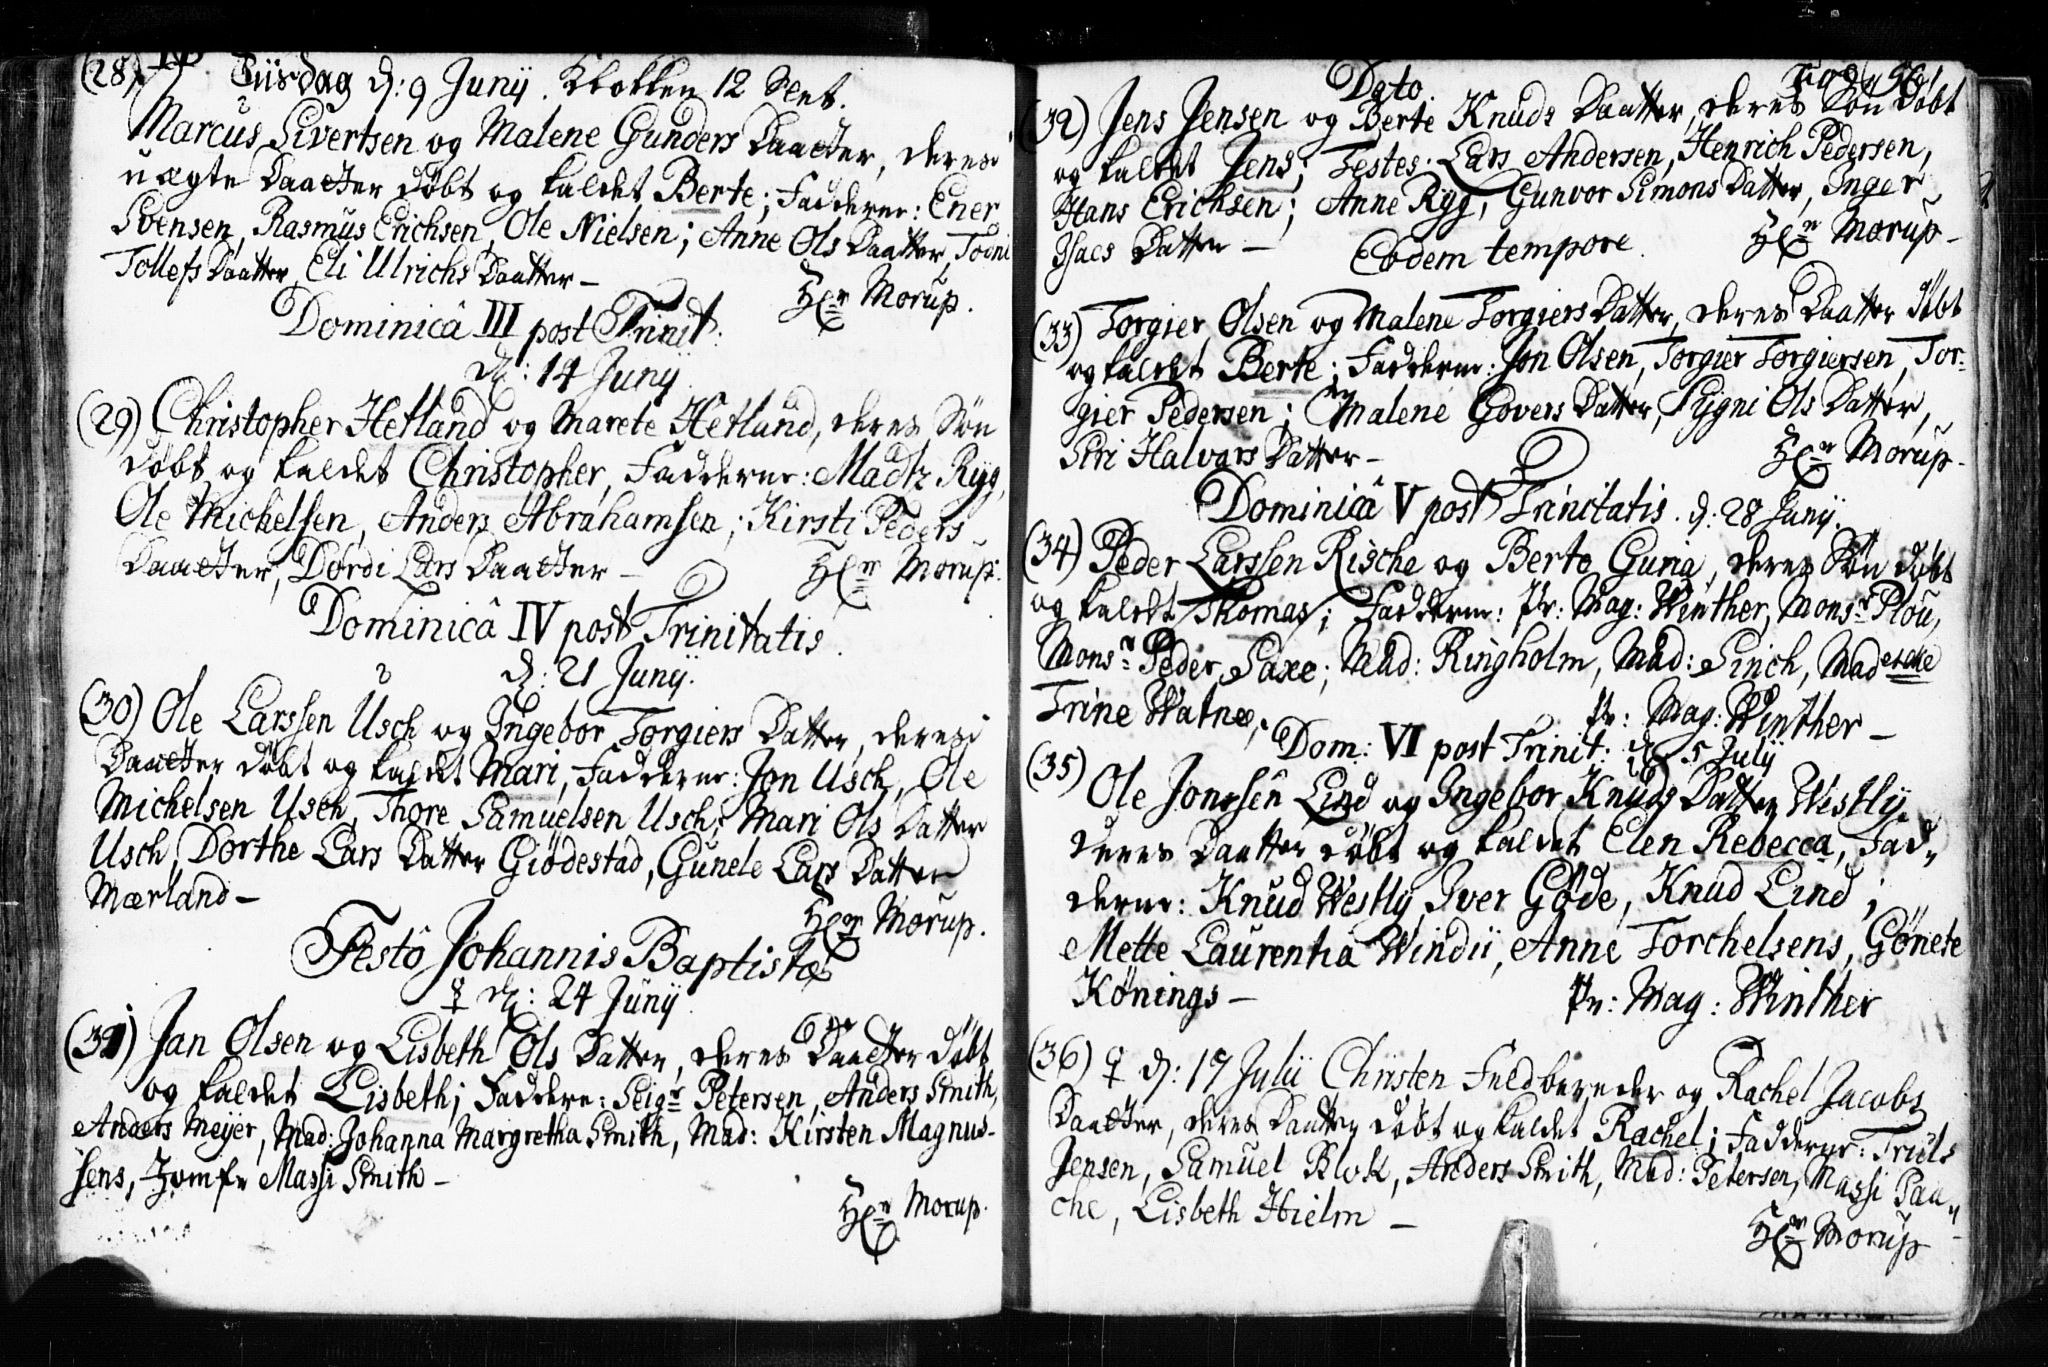 (28) Tiisdag d: 9 Junij. Klokken 12 Slet.
Marcus Sivertsen og Malene Gunders Daatter, deres
uægte Daatter døbt og kaldet Berte; Fadderne: Ener
Svensen, Rasmus Erichsen, Ole Nielsen; Anne Ols Daatter, Torni
Tollefs Daatter, Eli Ulrichs Daatter –
Hr Morup.
Dominicâ III post Trinit:
d: 14 Junij
(29) Christopher Hetland og Marete Hetland, deres Søn
døbt og kaldet Christopher, Fadderne: Madtz Ryg,
Ole Michelsen, Anders Abrahamsen; Kirsti Peders
Daatter, Dordi Lars Daatter –
Hr Morup.
Dominicâ IV post Trinitatis.
d: 21 Junij.
(30) Ole Larssen Usch og Ingebor Torgiers Datter, deres
Daatter døbt og kaldet Mari, Fadderne: Jon Usch, Ole
Michelsen Usch, Thore Samuelsen Usch; Mari Ols Datter
Usch, Dorthe Lars Datter Giødestad, Gunele Lars Datter
Mærland –
Hr Morup.
Festô Johannis Baptistæ
☿ d: 24 Junij
(31) Jan Olsen og Lisbeth Ols Datter, deres Daatter døbt
og kaldet Lisbeth; Faddere: Seigr Petersen, Anders Smith,
Anders Meyer, Mad: Johanna Margretha Smith, Mad: Kirsten Magnus-
sens, Jomfr Massi Smith –
Hr Morup.
Dato.
(32) Jens Jensen og Berte Knuds Daatter, deres Søn døbt
og kaldet Jens; Testes: Lars Andersen, Henrich Pedersen,
Hans Erichsen; Anne Ryg, Gunvor Simons Datter, Inger
Isacs Datter –
Hr Morup –
Eodem tempore.
(33) Torgier Olsen og Malene Torgiers Datter, deres Daatter døbt
og kaldet Berte; Fadderne: Jon Olsen, Torgier Torgiersen, Tor-
gier Pedersen; Malene Govers Datter, Sygni Ols Datter,
Siri Halvars Datter –
Hr Morup –
Dominicâ V post Trinitatis. d: 28 Junij.
(34) Peder Larssen Rische og Berte Guria, deres Søn døbt
og kaldet Thomas; Fadderne: Pr: Mag: Winther, Monsr Plou,
Monsr Peder Saxe; Mad: Ringholm, Mad: Sinch, Mad
Trine Watne,
Pr: Mag: Winther –
Dom: VI post Trinit: d 5 Julij
(35) Ole Jonssen Lind og Ingebor Knuds Datter Westly,
deres Daatter døbt og kaldet Elen Rebecca, Fad„
derne: Knud Westly, Iver Gøde, Knud Lind;
Mette Laurentia Windii, Anne Torchelsens, Gønete
Kønings –
Pr: Mag: Winther
(36) ♀ d: 17 Julii Christen Feldbereder og Rachel Jacobs
Daatter, deres Daatter døbt og kaldet Rachel; Fadderne: Truls
Jensen, Samuel Blok, Anders Smith, Mad: Petersen, Massi Paa„
che, Lisbeth Hielm –
Hr Morup